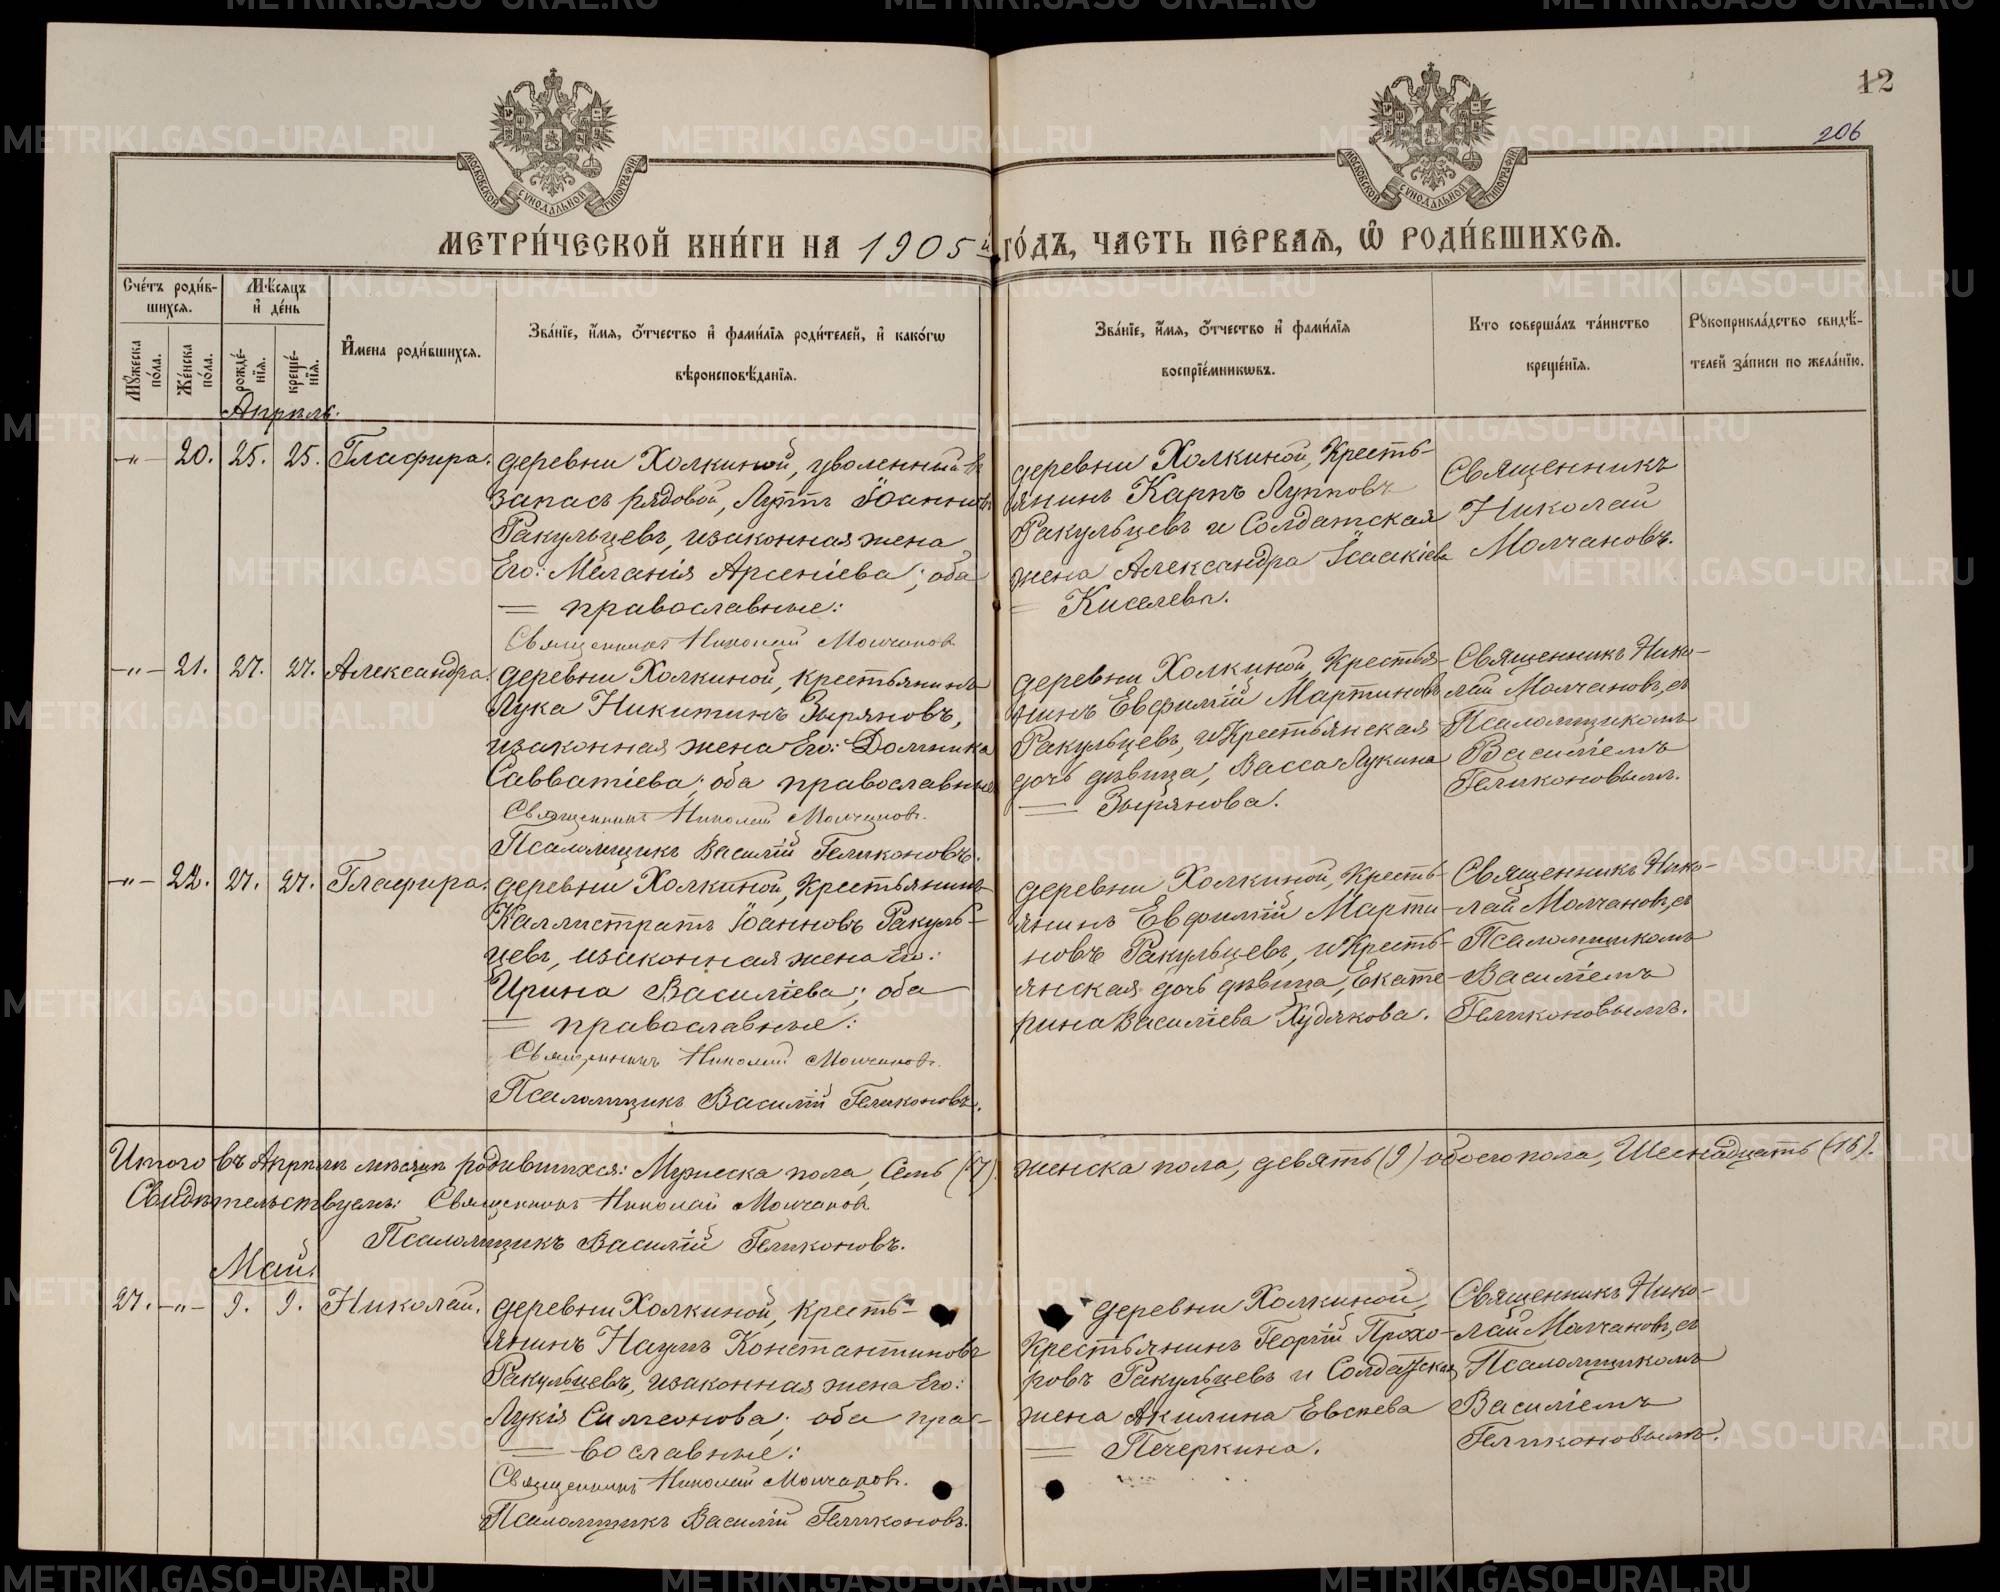 12
206
МОСКОВСКОЙ СѴНОДАЛЬНОЙ ТИПОГРАФІИ
МОСКОВСКОЙ СѴНОДАЛЬНОЙ ТИПОГРАФІИ
МЕТРИ́ЧЕСКОЙ КНИ́ГИ НА 1905й ГО́ДЪ, ЧАСТЬ ПЕ́РВАѦ, Ѡ҆ РОДИ́ВШИХСѦ.
Сче́тъ роди́в-
шихсѧ.
Мꙋ́жеска по́ла.
Же́нска по́ла.
Мѣ́сѧцъ
и҆ де́нь
рожде́-
нїѧ.
креще́-
нїѧ.
И҆мена роди́вшихсѧ.
Зва́нїе, и҆́мѧ, ѻ҆́тчество и҆ фами́лїѧ роди́телей, и҆ како́гѡ
вѣроисповѣ́данїѧ.
Зва́нїе, и҆́мѧ, ѻ҆́тчество и҆ фами́лїѧ
воспрїе́мникѡвъ.
Кто соверша́лъ та́инство
креще́нїѧ.
Рꙋкоприкла́дство свидѣ́-
телей за́писи по жела́нїю.
Апрѣль.
—„— 20. 25. 25. Глафира.
деревни Холкиной, уволенный въ
запасъ рядовой, Луппъ Іоанновъ
Ракульцевъ, изаконная жена
Его: Меланія Арсеніева; оба
= православные:
Священникъ Николай Молчановъ
деревни Холкиной, Кресть-
янинъ Карпъ Лупповъ
Ракульцевъ и Солдатская
жена Александра Исаакіева
= Киселева.
Священникъ
Николай
Молчановъ.
—„— 21. 27. 27. Александра.
деревни Холкиной, крестьянинъ
Лука Никитинъ Зыряновъ,
изаконная жена Его: Домника
Савватіева; оба православные
Священникъ Николай Молчановъ.
Псаломщикъ Василій Геликоновъ.
деревни Холкиной, Крестья-
нинъ Евфимій Мартиновъ
Ракульцевъ, и Крестьянская
дочь дѣвица, Васса Лукина
= Зырянова.
Священникъ Нико-
лай Молчановъ, съ
Псаломщикомъ
Василіемъ
Геликоновымъ.
—„— 22. 27. 27. Глафира.
деревни Холкиной, Крестьянинъ
Каллистратъ Іоанновъ Ракуль-
цевъ, изаконная жена Его:
Ирина Василіева; оба
= православные:
Священникъ Николай Молчановъ.
Псаломщикъ Василій Геликоновъ.
деревни Холкиной, Кресть-
янинъ Евфимій Марти-
новъ Ракульцевъ, и Кресть-
янская дочь дѣвица, Екате-
рина Василіева Худякова.
Священникъ Нико-
лай Молчановъ, съ
Псаломщикомъ
Василіемъ
Геликоновымъ.
Итого въ Апрѣлѣ мѣсяцѣ родившихся: Мужеска пола, Семь (7). женска пола, девять (9) обоего пола, Шеснадцать (16).
Свидѣтельствуемъ: Священникъ Николай Молчановъ
Псаломщикъ Василій Геликоновъ.
Май.
27. —„— 9. 9. Николай.
деревни Холкиной, кресть-
янинъ Наумъ Константиновъ
Ракульцевъ, изаконная жена Его:
Лукія Симеонова; оба пра-
= вославные:
Священникъ Николай Молчановъ.
Псаломщикъ Василій Геликоновъ.
деревни Холкиной,
Крестьянинъ Георгій Прохо-
ровъ Ракульцевъ и Солдатская
жена Акилина Евсѣева
= Печеркина.
Священникъ Нико-
лай Молчановъ, съ
Псаломщикомъ
Василіемъ
Геликоновымъ.
METRIKI.GASO-URAL.RU